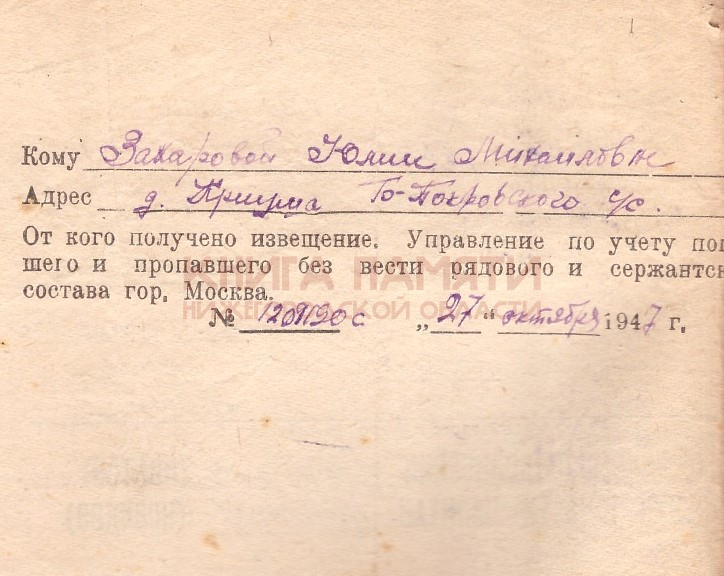 Кому Захаровой Юлии Михайловн
Адрес д. Гв-Покровского с/с.
От кого получено извещение. Управление по учету пог
шего и пропавшего без вести рядового и сержантск
состава гор. Москва.
КНИГА ПАМЯТИ
НИЖЕГОРОДСКОЙ ОБЛАСТИ
№ с „27“ октября 1947 г.